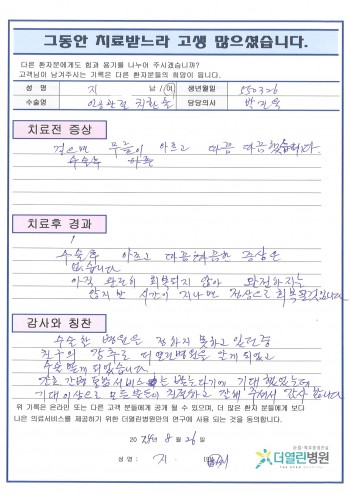 그동안 치료받느라 고생 많으셨습니다.
다른 환자분에게도 힘과 용기를 나누어 주시겠습니까?
고객님이 남겨주시는 기록은 다른 환자분들의 희망이 됩니다.
성 명 지 남 / 여 생년월일 550326
수술명 인공관절 치환술 담당의사 박
치료전 증상
걸으면 무릎이 아프고 따끔 따끔 했습니다.
치료후 경과
수술후 아프고 따끔 따끔한 증상은
없습니다
아직 완전히 회복되지 않아
않지만 시간이 지나면 정상으로 회복
감사와 칭찬
수술할 병원은 정하지 못하고
친구의 강추로 더열린병원을 알게 되었고
수술 받게 되었습니다
간호 간병 통합서비스 받는다기에 기대 했었는데
기대이상으로 모든 분들이 친절하고 잘해 주셔서 감사합니다
위 기록은 온라인 또는 다른 고객 분들에게 공개 될 수 있으며, 더 많은 환자 분들에게 보다
나은 의료서비스를 제공하기 위한 더열린병원만의 연구에 사용 되는 것을 동의합니다.
20 년 8 월 26 일
성 명 : 지
더열린병원